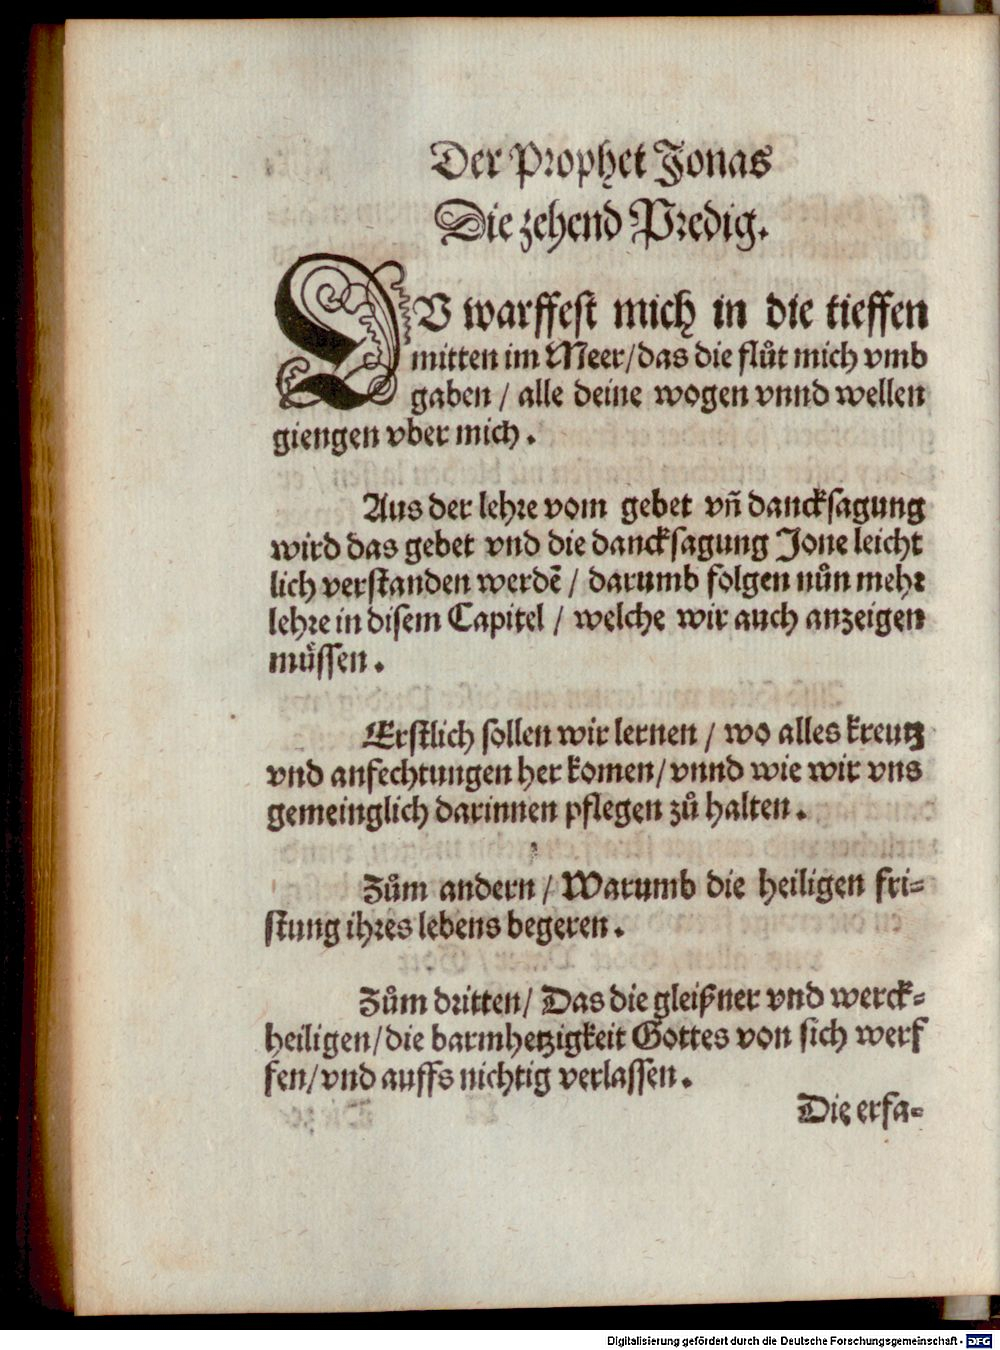 Der Prophet Jonas
Die zehend Predig.
DV warffest mich in die tieffen
mitten im Meer/das die flůt mich vmb
gaben / alle deine wogen vnnd wellen
giengen vber mich.
Aus der lehre vom gebet vñ dancksagung
wird das gebet vnd die dancksagung Jone leicht
lich verstanden werdẽ / darumb folgen nůn mehr
lehre in disem Capitel / welche wir auch anzeigen
müssen.
Erstlich sollen wir lernen / wo alles kreutz
vnd anfechtungen her komen/vnnd wie wir vns
gemeinglich darinnen pflegen zů halten.
Zům andern / Warumb die heiligen fri-
stung ihres lebens begeren.
Zům dritten/ Das die gleißner vnd werck-
heiligen/die barmhetzigkeit Gottes von sich werf
fen/vnd auffs nichtig verlassen.
Die erfa-
Digitalisierung gefördert durch die Deutsche Forschungsgemeinschaft - DFG